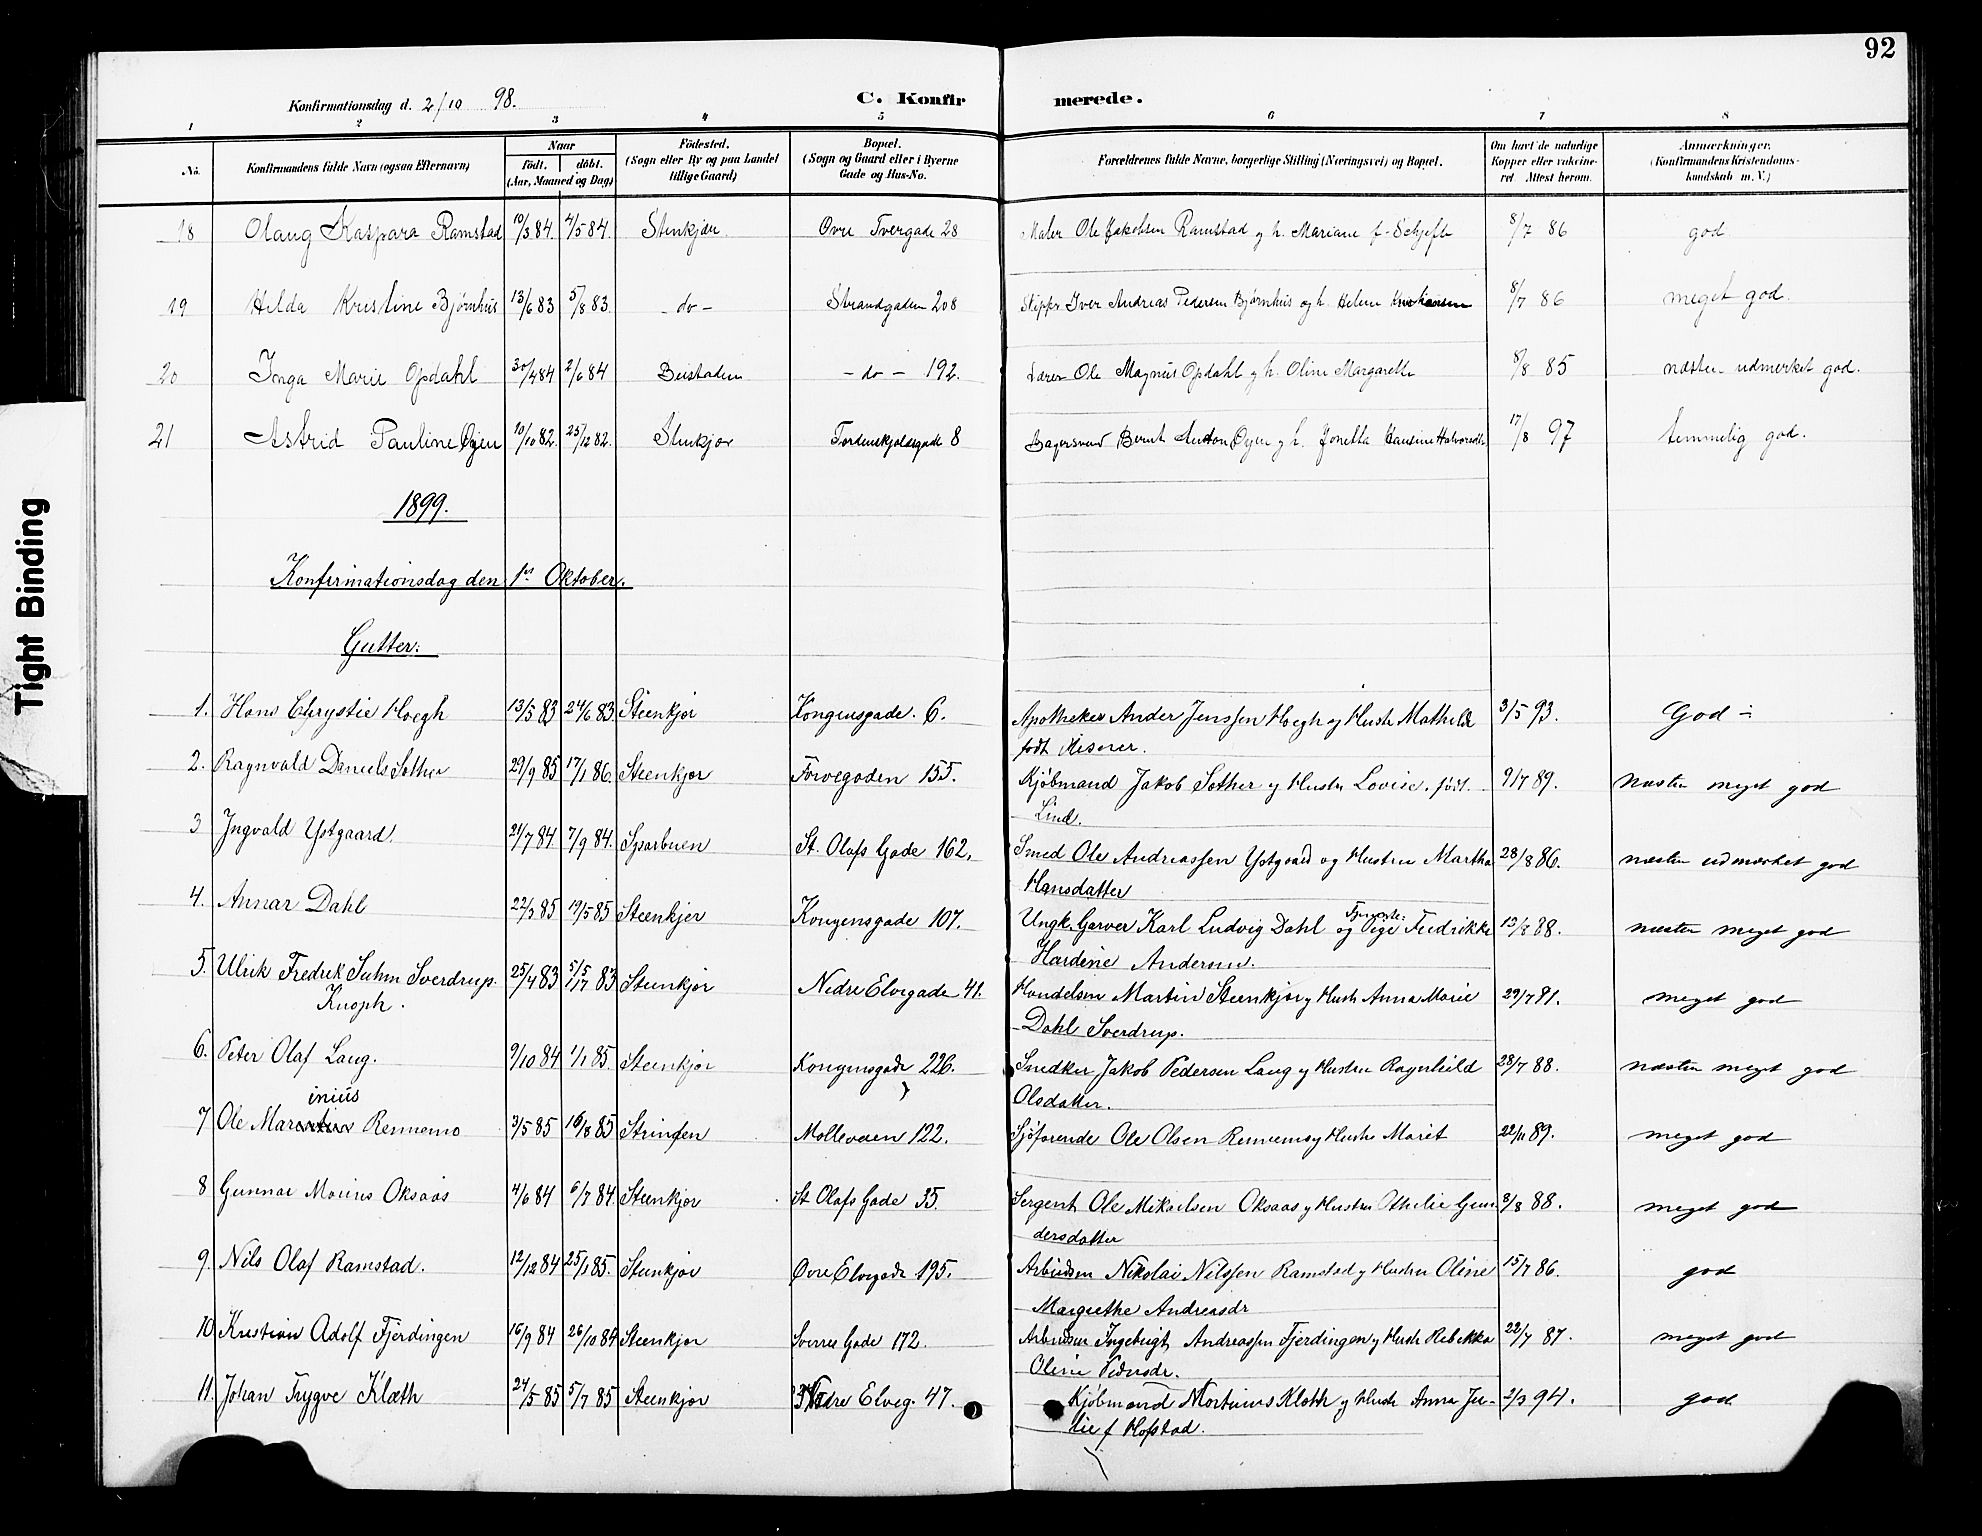 92
Konfirmationsdag d. 2/10 98.
C. Konfir merede.
1 2 3 4 5 6 7 8
No.
Konfirmandens fulde Navn (ogsaa Efternavn)
Naar
födt. döbt.
(Aar, Maaned og Dag)
Födested.
(Sogn eller By og paa Landet tillige Gaard)
Bopæl.
(Sogn og Gaard eller i Byerne Gade og Hus-No.
Forældrenes fulde Navne, borgerlige Stilling (Næringsvei) og Bopæl.
Om havt de naturlige Kopper eller vakcineret. Attest herom.
Anmærkninger.
(Konfirmandens Kristendomskundskab m. V.)
18 Olaug Kaspara Ramstad 10/3 84. 4/5 84. Stenkjær. Øvre Tvergade 28 Maler Ole Jakobsen Ramstad og h. Mariane f. Schjefte 8/7 86 god
19 Hilda Kristine Bjørnhus 13/6 83 5/8 83. - do - Strandgaden 208 Skipper Iver Andreas Pedersen Bjørnhus og h. Helene 8/7 86 meget god.
20 Inga Marie Opdahl 30/4 84 2/6 84 Beistaden - do - 192. Lærer Ole Magnus Opdahl og h. Oline Margarethe 8/8 85 næsten udmerket god.
21 Astrid Pauline Øyen 10/10 82. 25/12 82. Stenkjær Tordenskjoldsgade 8 Bagersvend Bernt Anton Øyen og h. Jonetta Hansine Halvorsdtr. 17/8 97 temmelig god.
1899.
Konfirmationsdag den 1ste Oktober.
Gutter:
1. Hans Chrystie Hoegh 13/5 83 24/6 83 Steenkjer Kongensgade. 6. Apotheker Ander Jenssen Hoegh og Hustr Mathilde 3/5 93. God -
født Meisner.
2. Ragnvald Daniels Sother 29/9 85 17/1 86. Steenkjer Farvegaden 155. Kjøbmand Jakob Sother og Hustru Lovise, født. 9/7 89. næsten meget god
Lind.
3 Ingvald Ystgaard. 21/7 84 7/9 84. Sparbuen St. Olafs Gade 162. Smed Ole Andreassen Ystgaard og Hustru Martha 28/8 86. næsten udmærket god
Hansdatter
4. Annar Dahl 22/3 85 19/5 85 Steenkjer Kongensgade 107. Ungk. Garver Karl Ludvig Dahl og Pige Fredrikke 13/8 88. næsten meget god
Hardine Andersen.
5. Ulrik Fredrik Suhm Sverdrup. 25/4 83 5/5 1/17 83 Steenkjer Nedre Elvegade 41. Handelsm Martin Steenkjer og Hustr Anna Marie 29/7 81. meget god
Knoph. Dahl Sverdrup.
6. Peter Olaf Laug. 9/10 84 1/1 85. Steenkjer Kongensgade 226. Snedker Jakob Pedersen Laug og Hustru Ragnhild 28/7 88. næsten meget god
Olsdatter.
inius
7 Ole Marentius Rennemo 3/5 85 16/8 85 Strinden Mølleveien 122. Sjøfarende Ole Olsen Rennemo og Hustr Marit 22/11 89. meget god
8 Gunnar Marius Oksaas 4/6 84 6/7 84. Steenkjer St Olafs Gade 35. Sergent Ole Mikaelsen Oksaas og Hustru Othelie Gun- 3/8 88. meget god
dersdatter
9. Nils Olaf Ramstad. 12/12 84 25/1 85. Steenkjer Øvre Elvegade 195. Arbeidsm Nikolai Nilssen Ramstad og Hustru Oline 15/7 86. god
Margrethe Andreasdr
10. Kristian Adolf Fjerdingen 16/9 84 26/10 84 Steenkjer Sverres Gade 172. Arbeidsm Ingebrigt Andreassen Fjerdingen og Hustr Rebekka 22/7 87. meget god
Oline Pedersdr.
11. Johan Trygve Klæth 24/5 85 5/7 85 Steenkjer Nedre Elveg. 47. Kjøbmand Martinus Kleth og Hustr Anna Ju- 2/3 94. god
lie f Hofstad.
Tight Binding